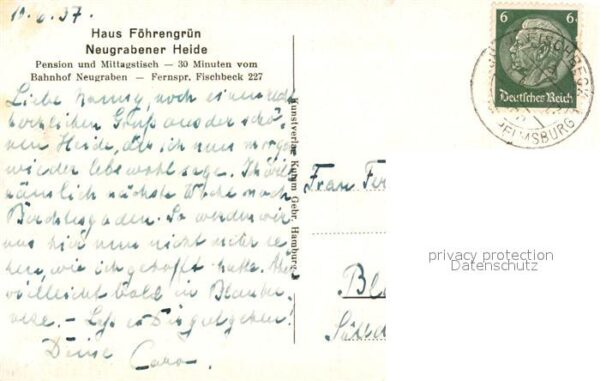 10.6.37.
Haus Föhrengrün
Neugrabener Heide
Pension und Mittagstisch — 30 Minuten vom
Bahnhof Neugraben — Fernspr. Fischbeck 227
Liebe noch einen
herzlichen Gruß aus der schö-
nen Heide, der ich nun morgen
wieder lebewohl sage. Ich will
nämlich nächste Woche nach
Berchtesgaden. So werden wir
uns hier nun nicht mehr se-
hen, wie ich gehofft hatte. Aber
vielleicht bald in Blanke-
nese. – Laß es Dir gut gehen!
Deine Caro.
Kunstverlag Kumm Gebr. Hamburg 3
6 6
Deutsches Reich
FISCHBECK
Frau Fer
Bl
privacy protection
Datenschutz